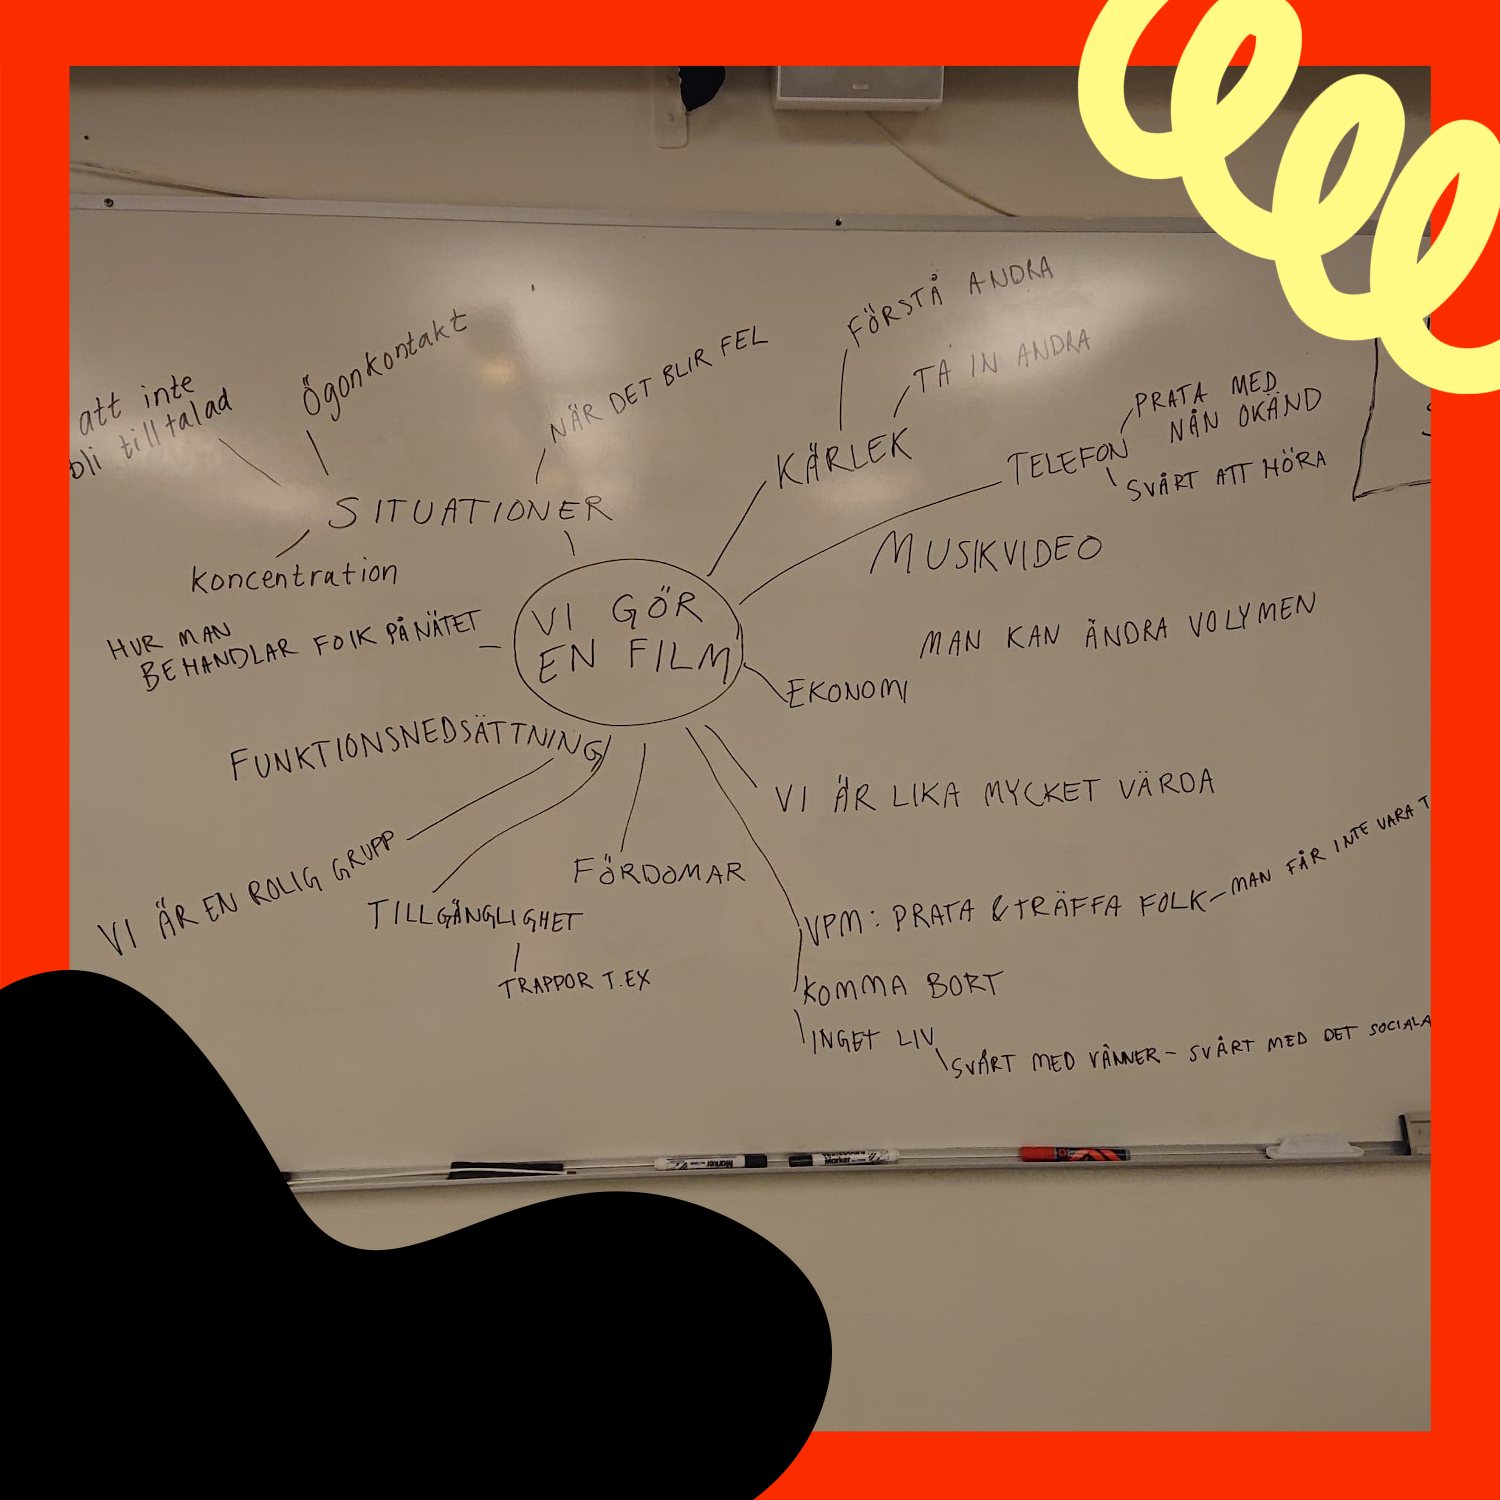 att inte
bli tilltalad
Ögonkontakt
NÄR DET BLIR FEL
SITUATIONER
koncentration
FÖRSTÅ ANDRA
TA IN ANDRA
KÄRLEK
TELEFON
PRATA MED
NÅN OKÄND
SVÅRT ATT HÖRA
VI GÖR
EN FILM
MUSIKVIDEO
MAN KAN ÄNDRA VOLYMEN
HUR MAN
BEHANDLAR FOLK PÅ NÄTET
EKONOMI
FUNKTIONSNEDSÄTTNING
VI ÄR EN ROLIG GRUPP
TILLGÄNGLIGHET
TRAPPOR T.EX
FÖRDOMAR
VI ÄR LIKA MYCKET VÄRDA
VPM: PRATA & TRÄFFA FOLK - MAN FÅR INTE VARA
KOMMA BORT
INGET LIV
SVÅRT MED VÄNNER - SVÅRT MED DET SOCIALA
Marker